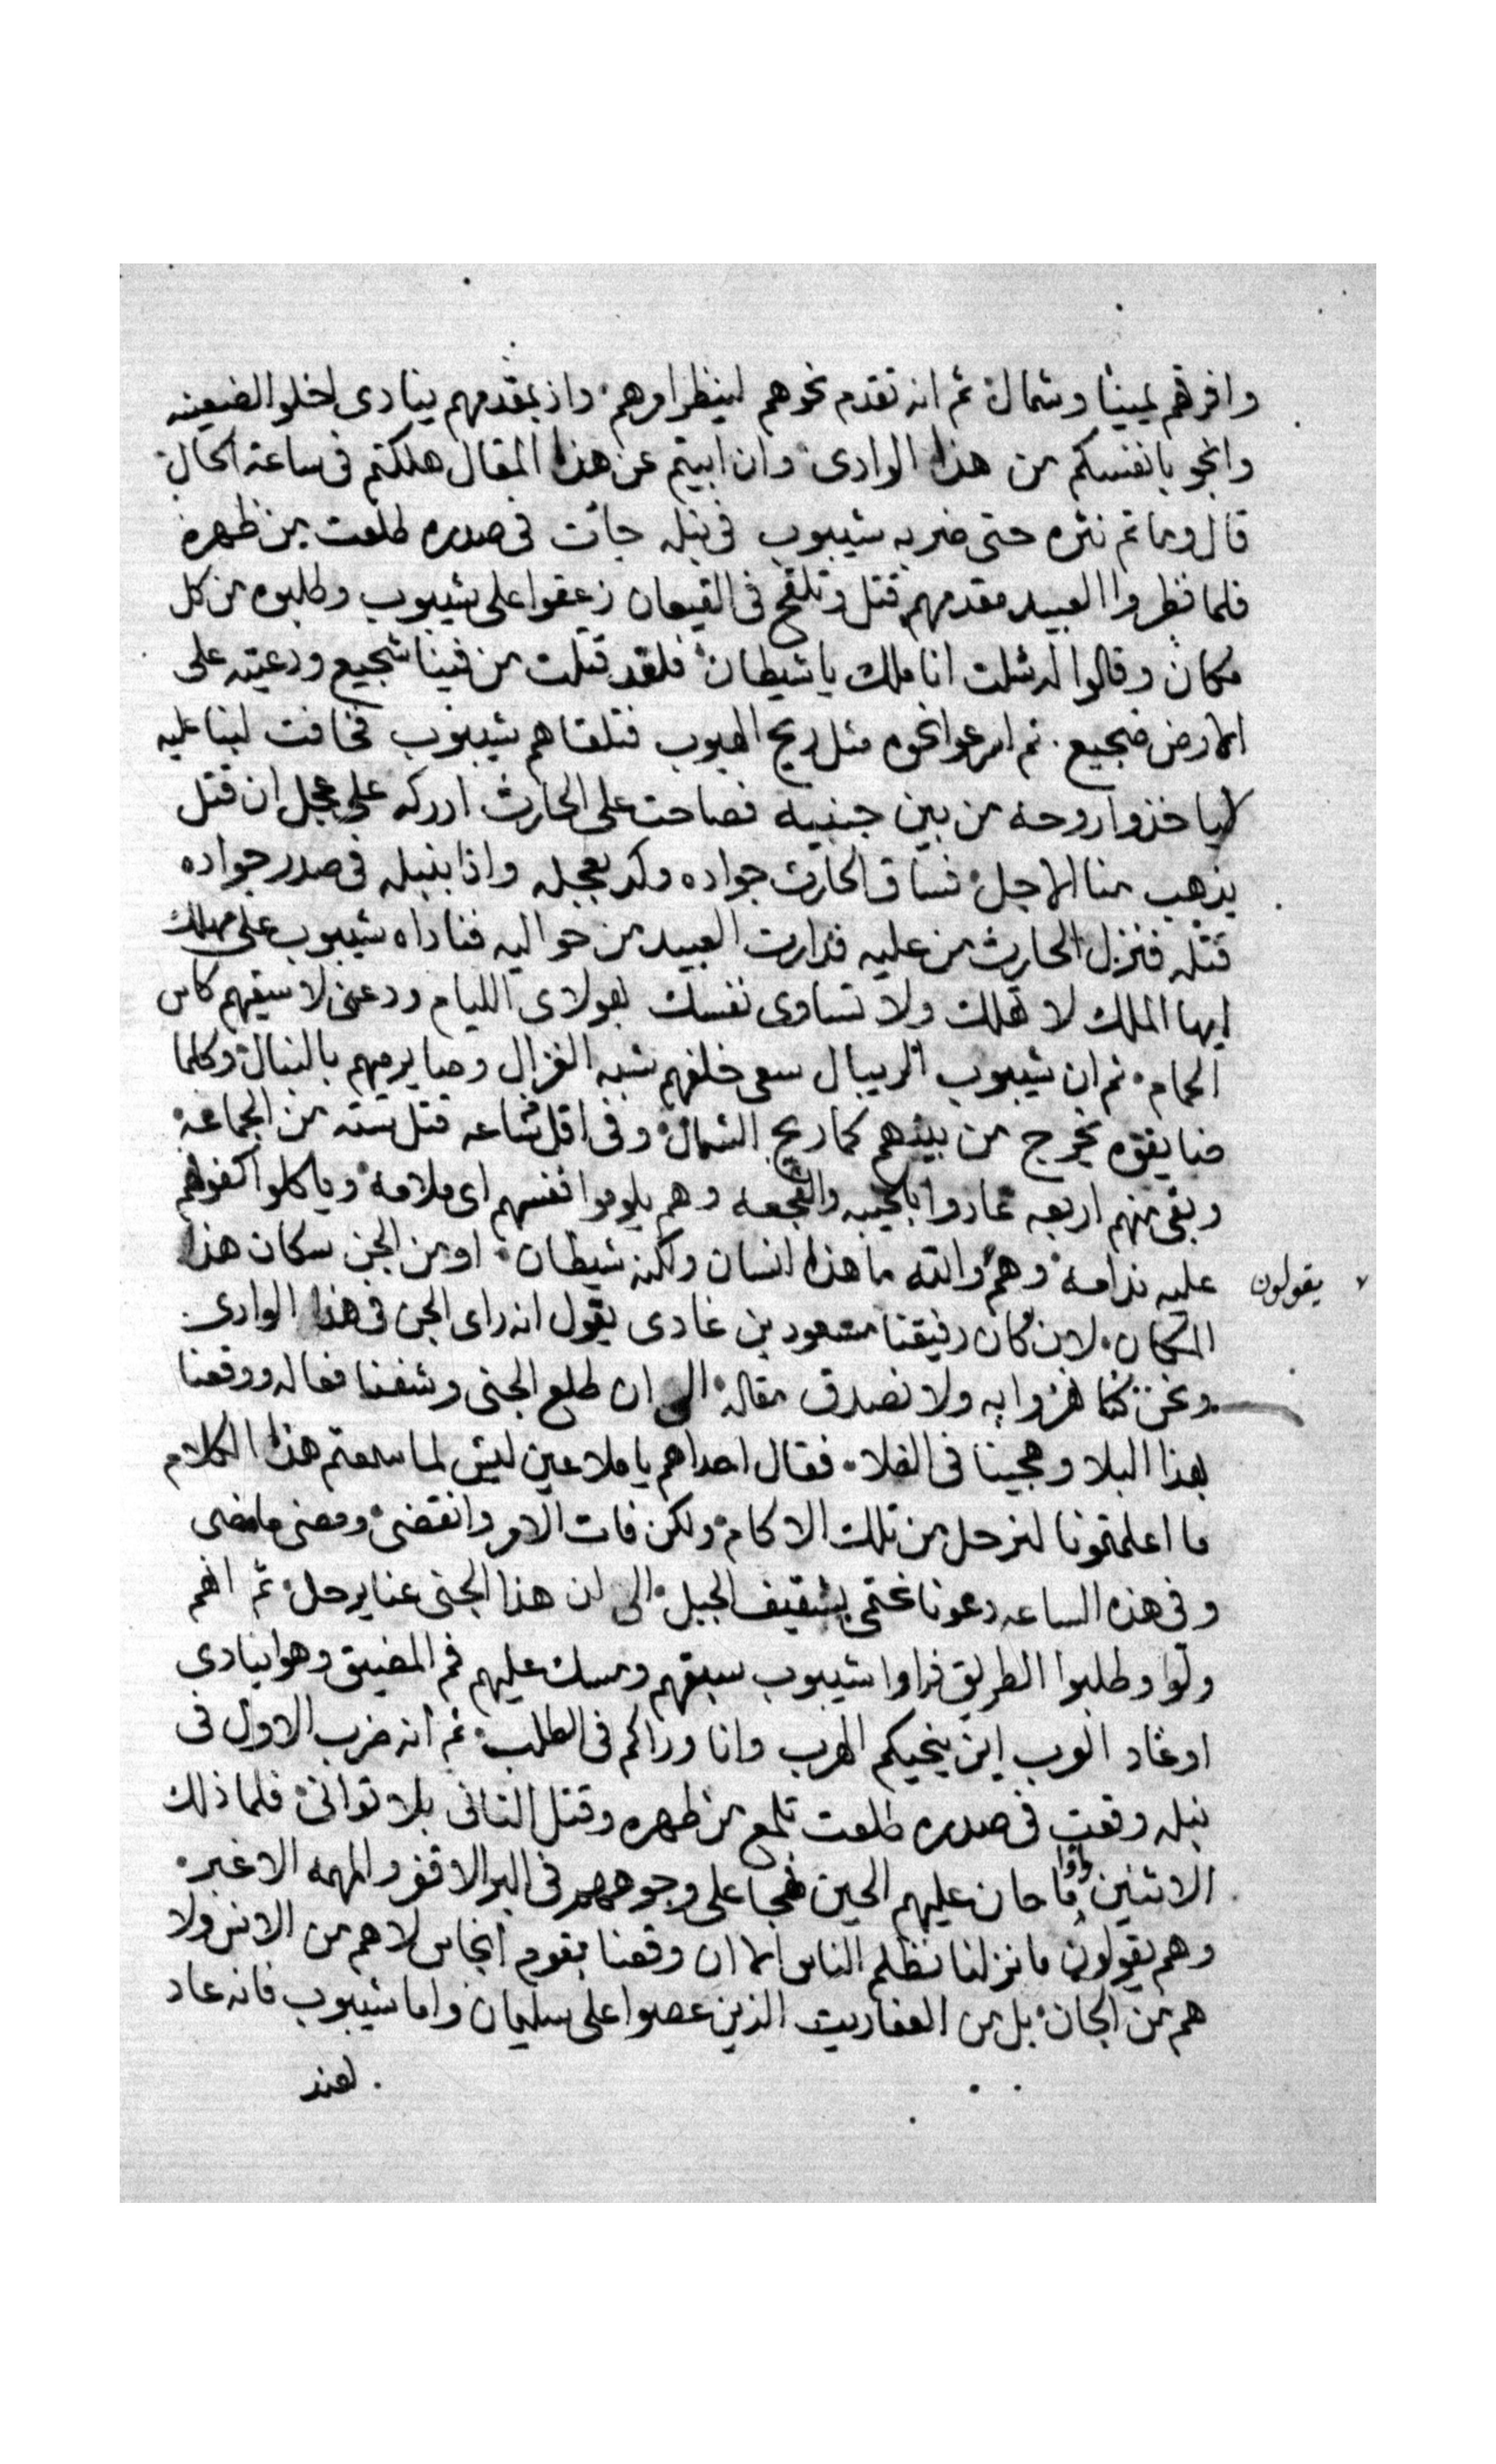 وافرقهم يمينا وشمال ثم انه تقدم نحوهم لينظر امرهم واذ بمقدمهم ينادى اخلو الضعينه
وانجو بانفسكم من هذا الوادى وان ابيتم عن هذا المقال هلكتم فى ساعة الحال
قال وما تم نثره حتى ضربه شيبوب فى نبله جائت فى صدره طلعت من ظهره
فلما نظروا العبيد مقدمهم قتل وتلقح فى القيعان زعقوا على شيبوب وطلبوه من كل
مكان وقالوا له شلت اناملك يا شيطان فلقد قتلت من فينا شجيع ودعيته على
الارض ضجيع ثم اسرعوا نحوه مثل ريح الهبوب فتلقاهم شيبوب فخافت لبنا عليه
لا ياخذوا روحه من بين جنبيه فصاحت على الحارث ادركه على عجل ان قتل
يذهب منا الاجل فساق الحارث جواده وكر بعجله واذا بنبله فى صدر جواده
قتله فنزل الحارث من عليه فدارت العبيد من حواليه فناداه شيبوب على مهلك
ايها الملك لا تهلك ولا تساوى نفسك لهولاى الليام ودعنى لاسيقهم كاس
الحمام ثم ان شيبوب الريبال سعى خلفهم شبه الغزال وصا يرميهم بالنبال وكلما
ضايقوه يخرج من بينهم كما ريح الشمال وفى اقل ساعه قتل سته من الجماعه
وبقى منهم اربعه عادوا بالخيبه والفجعه وهم يلوموا انفسهم اى ملامه وياكلوا اكفوفهم
عليه ندامه وهم والله ما هذا انسان ولكنه شيطان او من الجن سكان هذا
يقولون
المكان لان كان رفيقنا مسعود بن غادى يقول انه راى الجن فى هذا الوادى
ونحن كنا نهزوا به ولا نصدق مقاله الى ان طلع الجنى وشفنا فعاله ووقعنا
بهذا البلا وهجينا فى الفلا فقال احداهم يا ملاعين ليش لما سمعتم هذا الكلام
ما اعلمتونا لنرحل من تلك الاكام ولكن فات الامر وانقضى ومضى ما مضى
وفى هذه الساعه دعونا نختمى بشقيف الجبل الى ان هذا الجنى عنا يرحل ثم انهم
ولو وطلبوا الطريق فراوا شيبوب سبقهم ومسك عليهم فم المضيق وهو اينادى
اوغاد العرب اين ينجيكم الهرب وانا وراكم فى الطلب ثم انه ضرب الاول فى
نبله وقعت فى صدره طلعت تلمع من ظهره وقتل الثانى بلا توانى فلما ذلك
الاثنين راوا ما حان عليهم الحين فهجا على وجوههم فى البر الاقفر والمهمه الاغبر
وهم يقولون ما نزلنا نظلم الناس الا ان وقعنا بقوم انجاس لا هم من الانس ولا
هم من الجان بل من العفاريت الذين عصوا على سليمان واما شيبوب فانه عاد
لعند